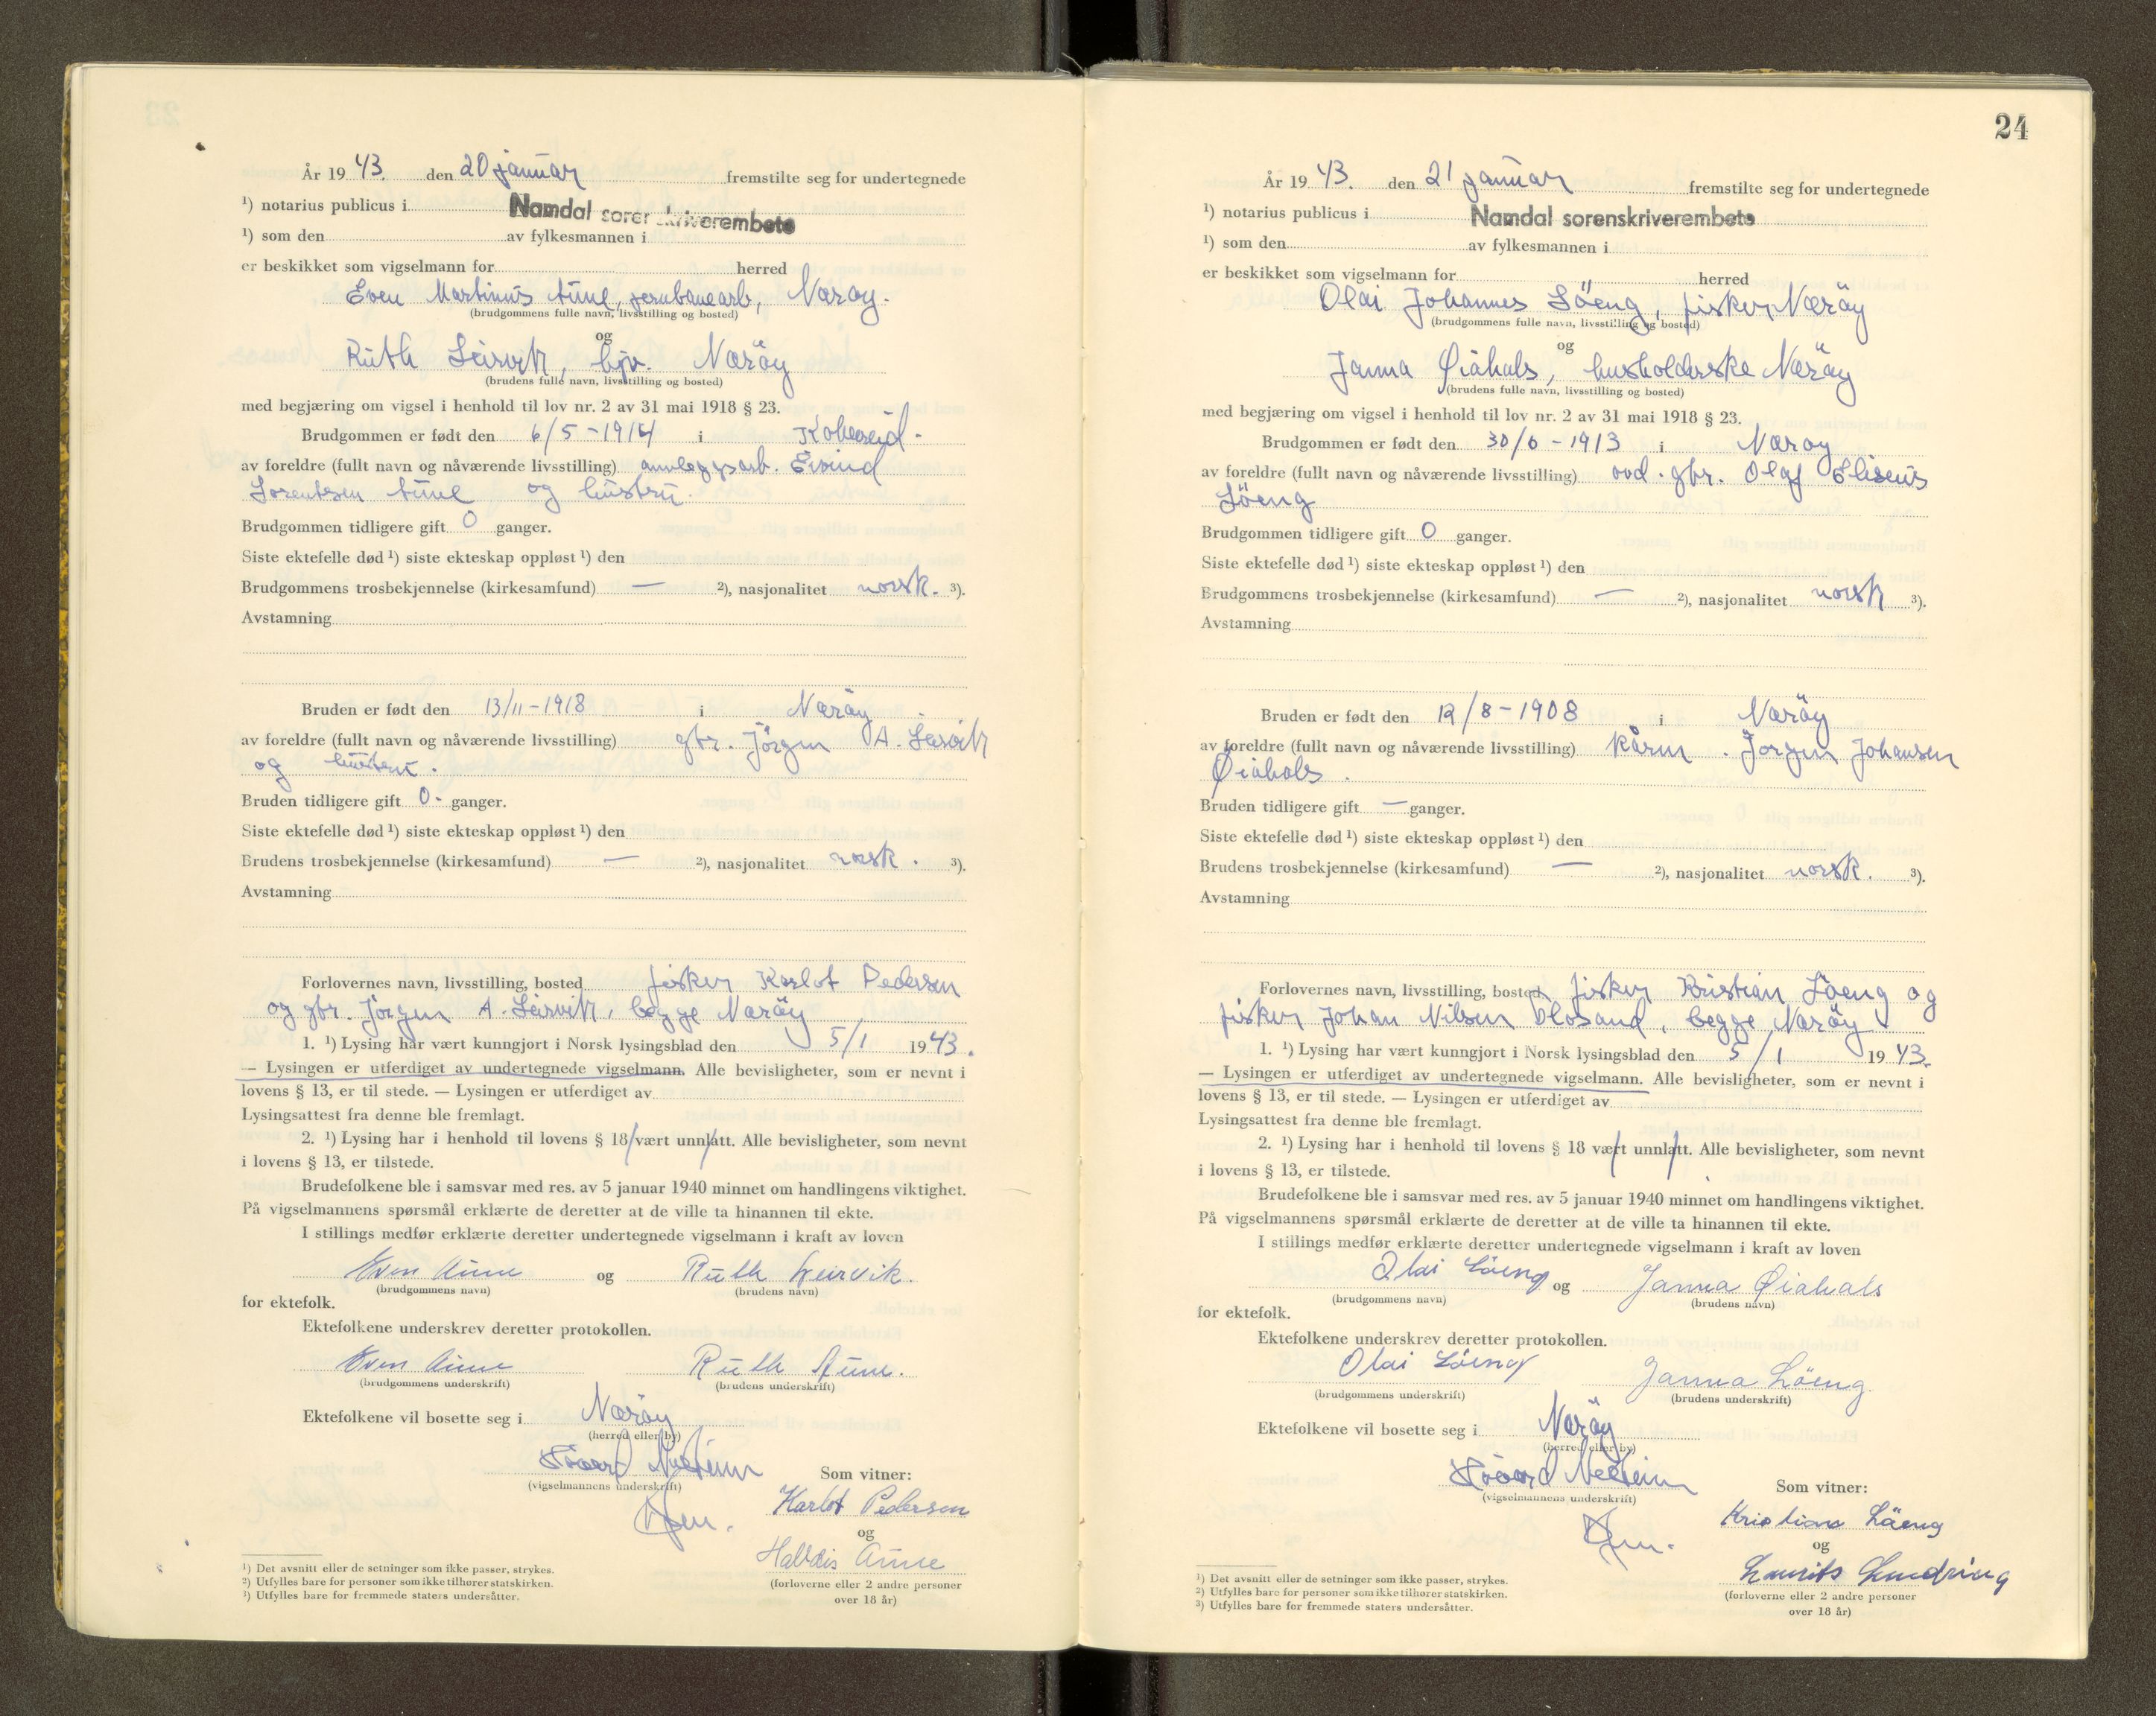 År 1943. den 20 januar fremstilte seg for undertegnede
¹) notarius publicus i Namdal sorenskriverembete
¹) som den av fylkesmannen i
er beskikket som vigselmann for herred
Even Martinus Aune, jernbanearb, Nærøy.
(brudgommens fulle navn, livsstilling og bosted)
og
Ruth Leirvik, hjv. Nærøy
(brudens fulle navn, livsstilling og bosted)
med begjæring om vigsel i henhold til lov nr. 2 av 31 mai 1918 § 23.
Brudgommen er født den 6/5-1914 i Kolvereid.
av foreldre (fullt navn og nåværende livsstilling) annleggsarb. Eivind
Lorentsen Aune og hustru.
Brudgommen tidligere gift 0 ganger.
Siste ektefelle død ¹) siste ekteskap oppløst ¹) den
Brudgommens trosbekjennelse (kirkesamfund) — ²), nasjonalitet norsk. ³).
Avstamning
Bruden er født den 13/11-1918 i Nærøy
av foreldre (fullt navn og nåværende livsstilling) gbr. Jörgen A. Leirvik
og hustru.
Bruden tidligere gift 0- ganger.
Siste ektefelle død ¹) siste ekteskap oppløst ¹) den
Brudens trosbekjennelse (kirkesamfund) — ²), nasjonalitet norsk. ³).
Avstamning
Forlovernes navn, livsstilling, bosted fisker Karlot Pedersen
og gbr. Jörgen A. Leirvik, begge Nærøy
1. ¹) Lysing har vært kunngjort i Norsk lysingsblad den 5/1 1943.
— Lysingen er utferdiget av undertegnede vigselmann. Alle bevisligheter, som er nevnt i
lovens § 13, er til stede. — Lysingen er utferdiget av
Lysingsattest fra denne ble fremlagt.
2. ¹) Lysing har i henhold til lovens § 18 vært unnlatt. Alle bevisligheter, som nevnt
i lovens § 13, er tilstede.
Brudefolkene ble i samsvar med res. av 5 januar 1940 minnet om handlingens viktighet.
På vigselmannens spørsmål erklærte de deretter at de ville ta hinannen til ekte.
I stillings medfør erklærte deretter undertegnede vigselmann i kraft av loven
Even Aune og Ruth Leirvik.
(brudgommens navn) (brudens navn)
for ektefolk.
Ektefolkene underskrev deretter protokollen.
Even Aune Ruth Aune.
(brudgommens underskrift) (brudens underskrift)
Ektefolkene vil bosette seg i Nærøy
(herred eller by)
Som vitner:
(vigselmannens underskrift)
Karlot Pedersen
og
Halldis Aune
(forloverne eller 2 andre personer
over 18 år)
¹) Det avsnitt eller de setninger som ikke passer, strykes.
²) Utfylles bare for personer som ikke tilhører statskirken.
³) Utfylles bare for fremmede staters undersåtter.
24
År 1943. den 21 januar fremstilte seg for undertegnede
¹) notarius publicus i Namdal sorenskriverembete
¹) som den av fylkesmannen i
er beskikket som vigselmann for herred
Olai Johannes Löeng, fisker, Næröy
(brudgommens fulle navn, livsstilling og bosted)
og
Janna Øiahals, husholderske Næröy
(brudens fulle navn, livsstilling og bosted)
med begjæring om vigsel i henhold til lov nr. 2 av 31 mai 1918 § 23.
Brudgommen er født den 30/6-1913 i Nærøy
av foreldre (fullt navn og nåværende livsstilling) avd. gbr. Olaf Eliseus
Löeng
Brudgommen tidligere gift 0 ganger.
Siste ektefelle død ¹) siste ekteskap oppløst ¹) den
Brudgommens trosbekjennelse (kirkesamfund) — ²), nasjonalitet norsk ³).
Avstamning
Bruden er født den 12/8-1908 i Næröy
av foreldre (fullt navn og nåværende livsstilling) kårm. Jörgen Johansen
Øiahals.
Bruden tidligere gift — ganger.
Siste ektefelle død ¹) siste ekteskap oppløst ¹) den
Brudens trosbekjennelse (kirkesamfund) — ²), nasjonalitet norsk. ³).
Avstamning
Forlovernes navn, livsstilling, bosted fisker Kristian Löeng og
fisker Johan Nilsen Olosand, begge Næröy
1. ¹) Lysing har vært kunngjort i Norsk lysingsblad den 5/1 1943.
— Lysingen er utferdiget av undertegnede vigselmann. Alle bevisligheter, som er nevnt i
lovens § 13, er til stede. — Lysingen er utferdiget av
Lysingsattest fra denne ble fremlagt.
2. ¹) Lysing har i henhold til lovens § 18 vært unnlatt. Alle bevisligheter, som nevnt
i lovens § 13, er tilstede.
Brudefolkene ble i samsvar med res. av 5 januar 1940 minnet om handlingens viktighet.
På vigselmannens spørsmål erklærte de deretter at de ville ta hinannen til ekte.
I stillings medfør erklærte deretter undertegnede vigselmann i kraft av loven
Olai Löeng og Janna Øiahals
(brudgommens navn) (brudens navn)
for ektefolk.
Ektefolkene underskrev deretter protokollen.
Olai Löeng Janna Löeng.
(brudgommens underskrift) (brudens underskrift)
Ektefolkene vil bosette seg i Nærøy
(herred eller by)
Som vitner:
(vigselmannens underskrift)
Kristian Löeng
og
Laurits Lundring
(forloverne eller 2 andre personer
over 18 år)
¹) Det avsnitt eller de setninger som ikke passer, strykes.
²) Utfylles bare for personer som ikke tilhører statskirken.
³) Utfylles bare for fremmede staters undersåtter.